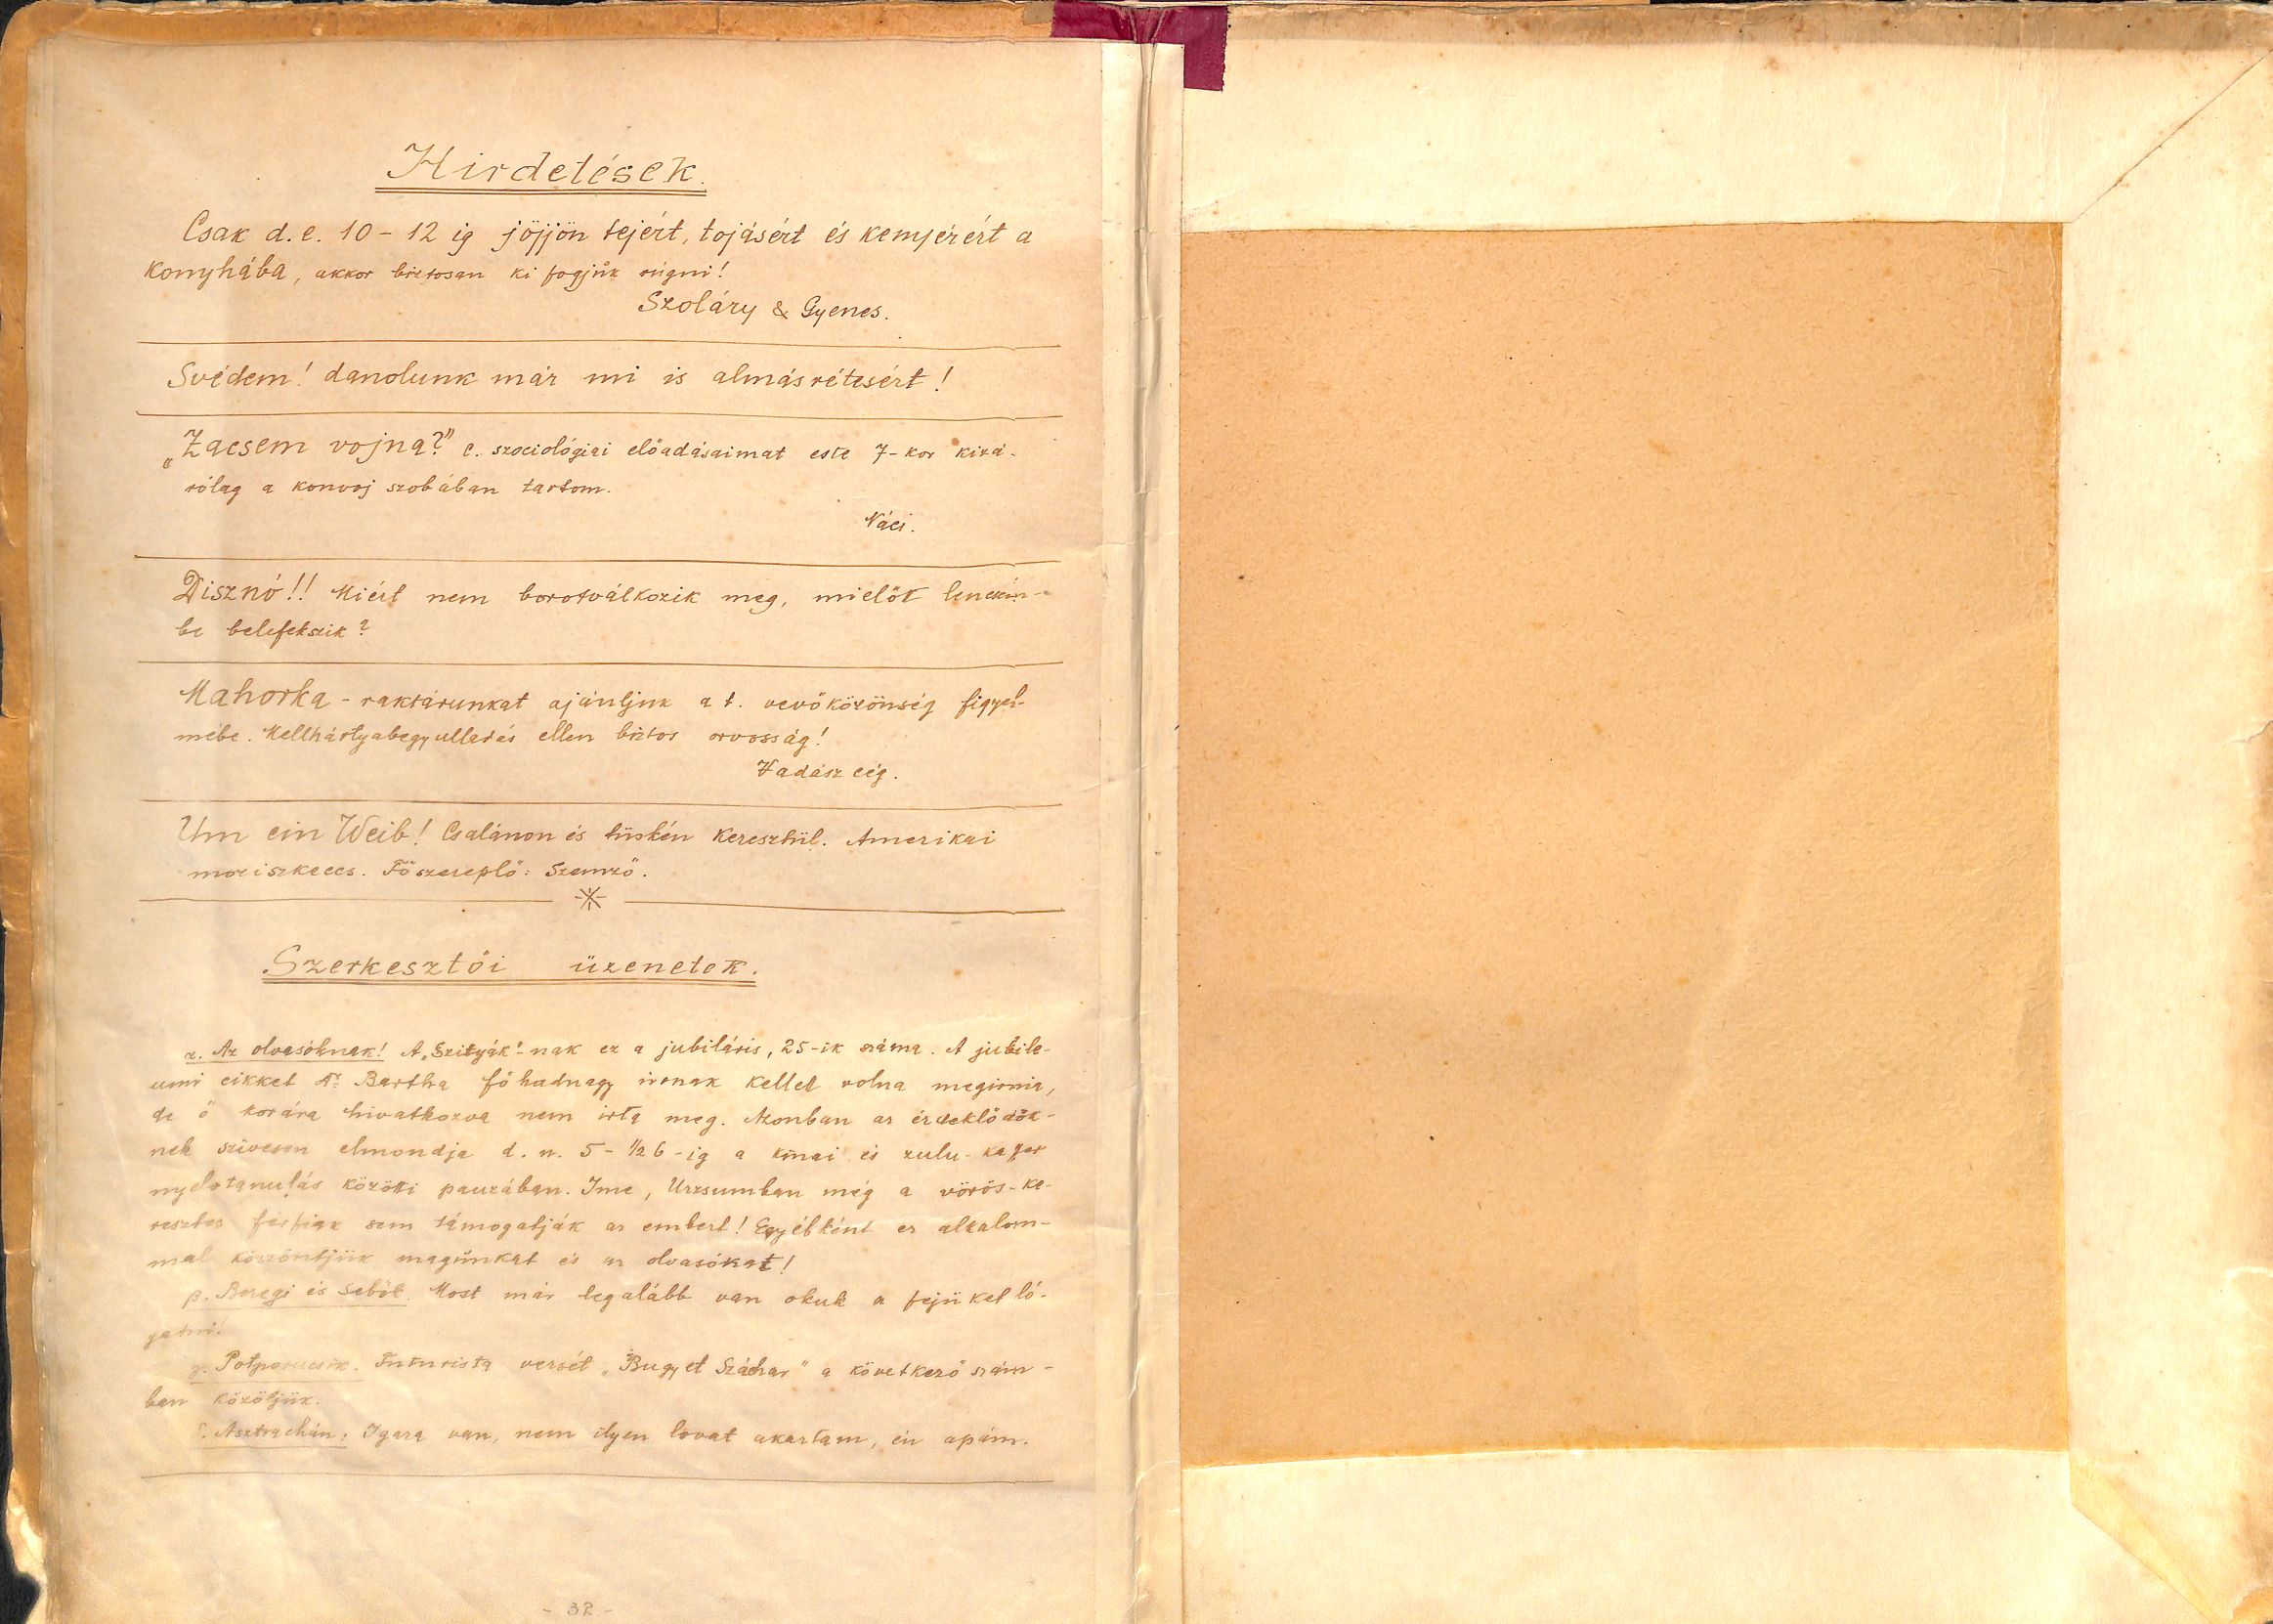 Hirdetések.
Csak d.e. 10 - 12 ig jöjjön tejért, tojásért és kenyérért a
konyhába, akkor biztosan ki fogjuk rúgni!
Szoláry & Gyenes.
Svédem! danolunk már mi is almásrétesért!
„Zacsem vojna?" c. szociológiai előadásaimat este 7-kor kizá-
rólag a konvoj szobában tartom.
Náci.
Disznó!! Miért nem borotválkozik meg, mielőt
be belefekszik?
Mahorka - raktárunkat ajánljuk a t. vevőközönség figyel-
mébe. Mellhártyabegyulladás ellen biztos orvosság!
Vadász cég.
Um ein Weib! Csalánon és tüskén keresztül. Amerikai
moziszkeccs. Főszereplő: Szemző.
Szerkesztői üzenetek.
α. Az olvasóknak! A „Szityák"-nak ez a jubiláris, 25-ik száma. A jubile-
umi cikket Dr. Bartha főhadnagy úrnak kellet volna megirnia,
de ő korára hivatkozva nem irta meg. Azonban az érdeklődők-
nek szivesen elmondja d. u. 5 - ½ 6 -ig a kinai és zulu-kaffer
nyelvtanulás közötti pauzában. Ime, Urzsumban még a vörös-ke-
resztes férfiak sem támogatják az embert! Egyébként ez alkalom-
mal köszöntjük magunkat és az olvasókat!
β. Beregi és Sebők. Most már legalább van okuk a fejüket ló-
gatni!
γ. Potporucsik. Futurista versét „Bugyet Száchar" a következő szám-
ban közöljük.
δ. Asztrachán: Igaza van, nem ilyen lovat akartam, én apám.
- 32 -